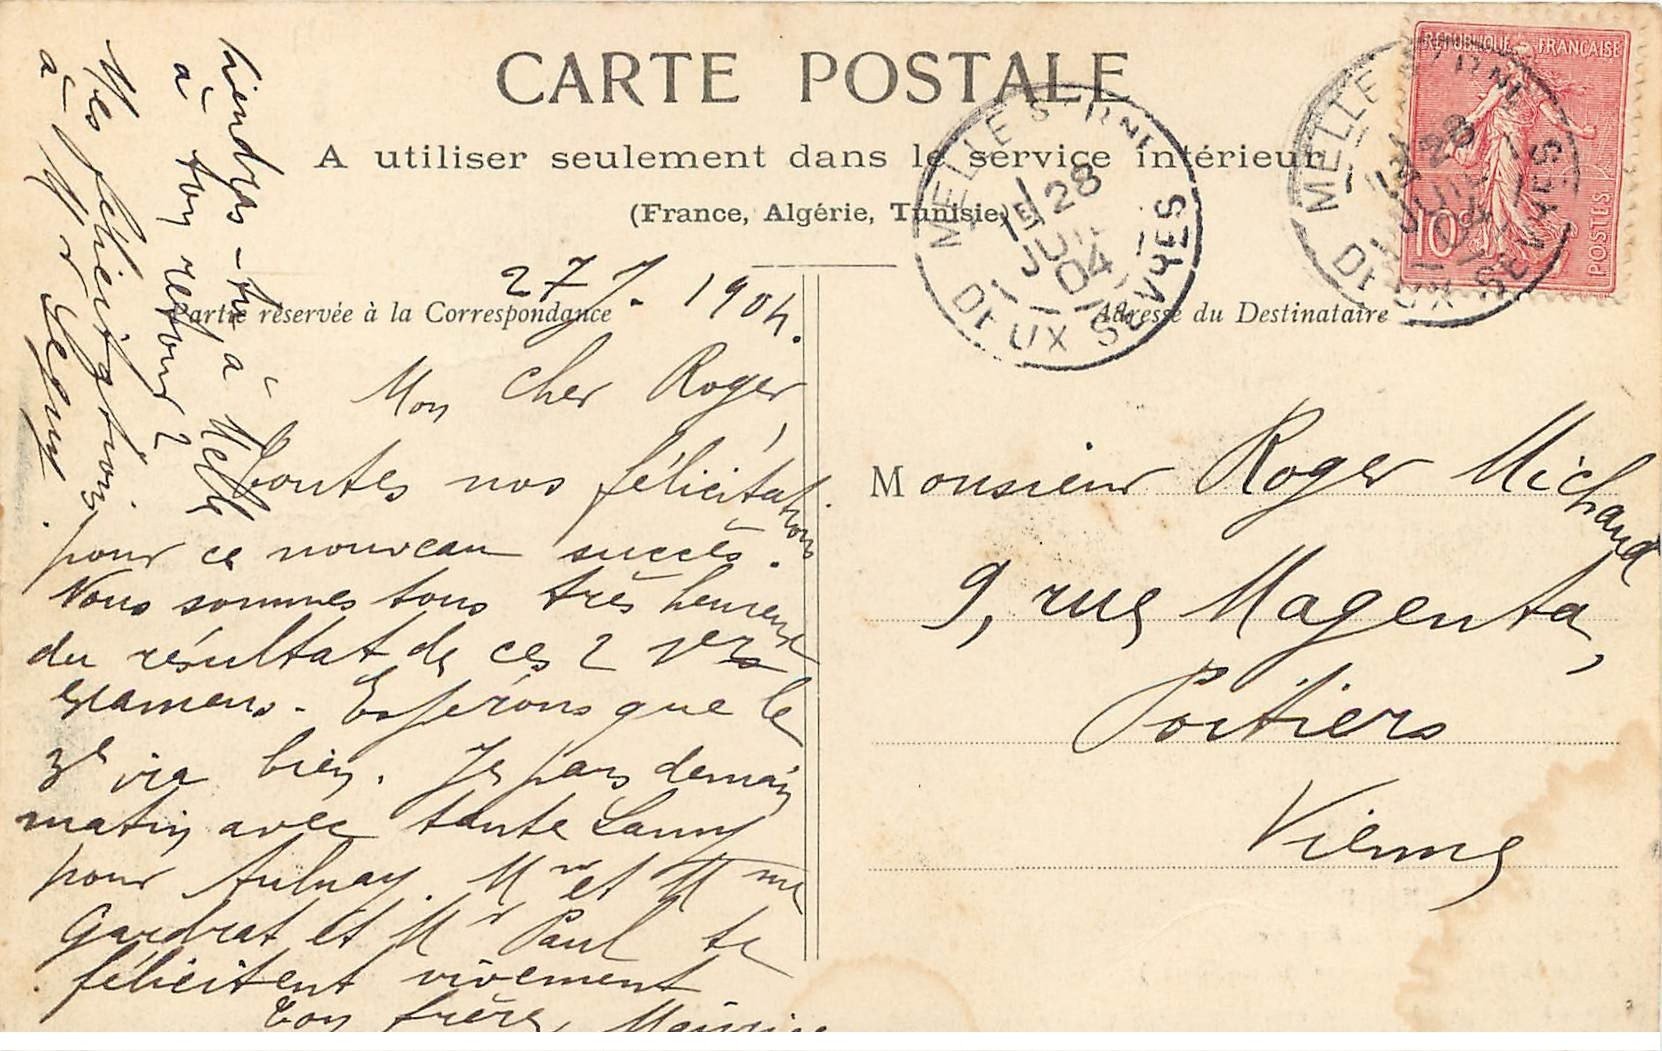 CARTE POSTALE
A utiliser seulement dans le service intérieur
(France, Algérie, Tunisie)
REPUBLIQUE FRANÇAISE
10c
POSTES
MELLE S BNE
1E
28
JUIL
04
DEUX SEVRES
MELLE S BNE
28
JUIL
04
DEUX SEVRES
Partie réservée à la Correspondance
27 7. 1904.
Mon cher Roger,
Toutes nos félicitations
pour ce nouveau succès.
Nous sommes tous très heureux
du résultat de ces 2 1ers
examens. Espérons que le
3e ira bien. Je pars demain
matin avec tante Launy
pour Aulnay. Mr et Mme
Gardrat et Mr Paul te
félicitent vivement
Ton frère, Maurice
Viendras-tu à Melle
à ton retour ?
Mes félicitations
à Mr
Adresse du Destinataire
Monsieur Roger Michaud
9, rue Magenta,
Poitiers
Vienne